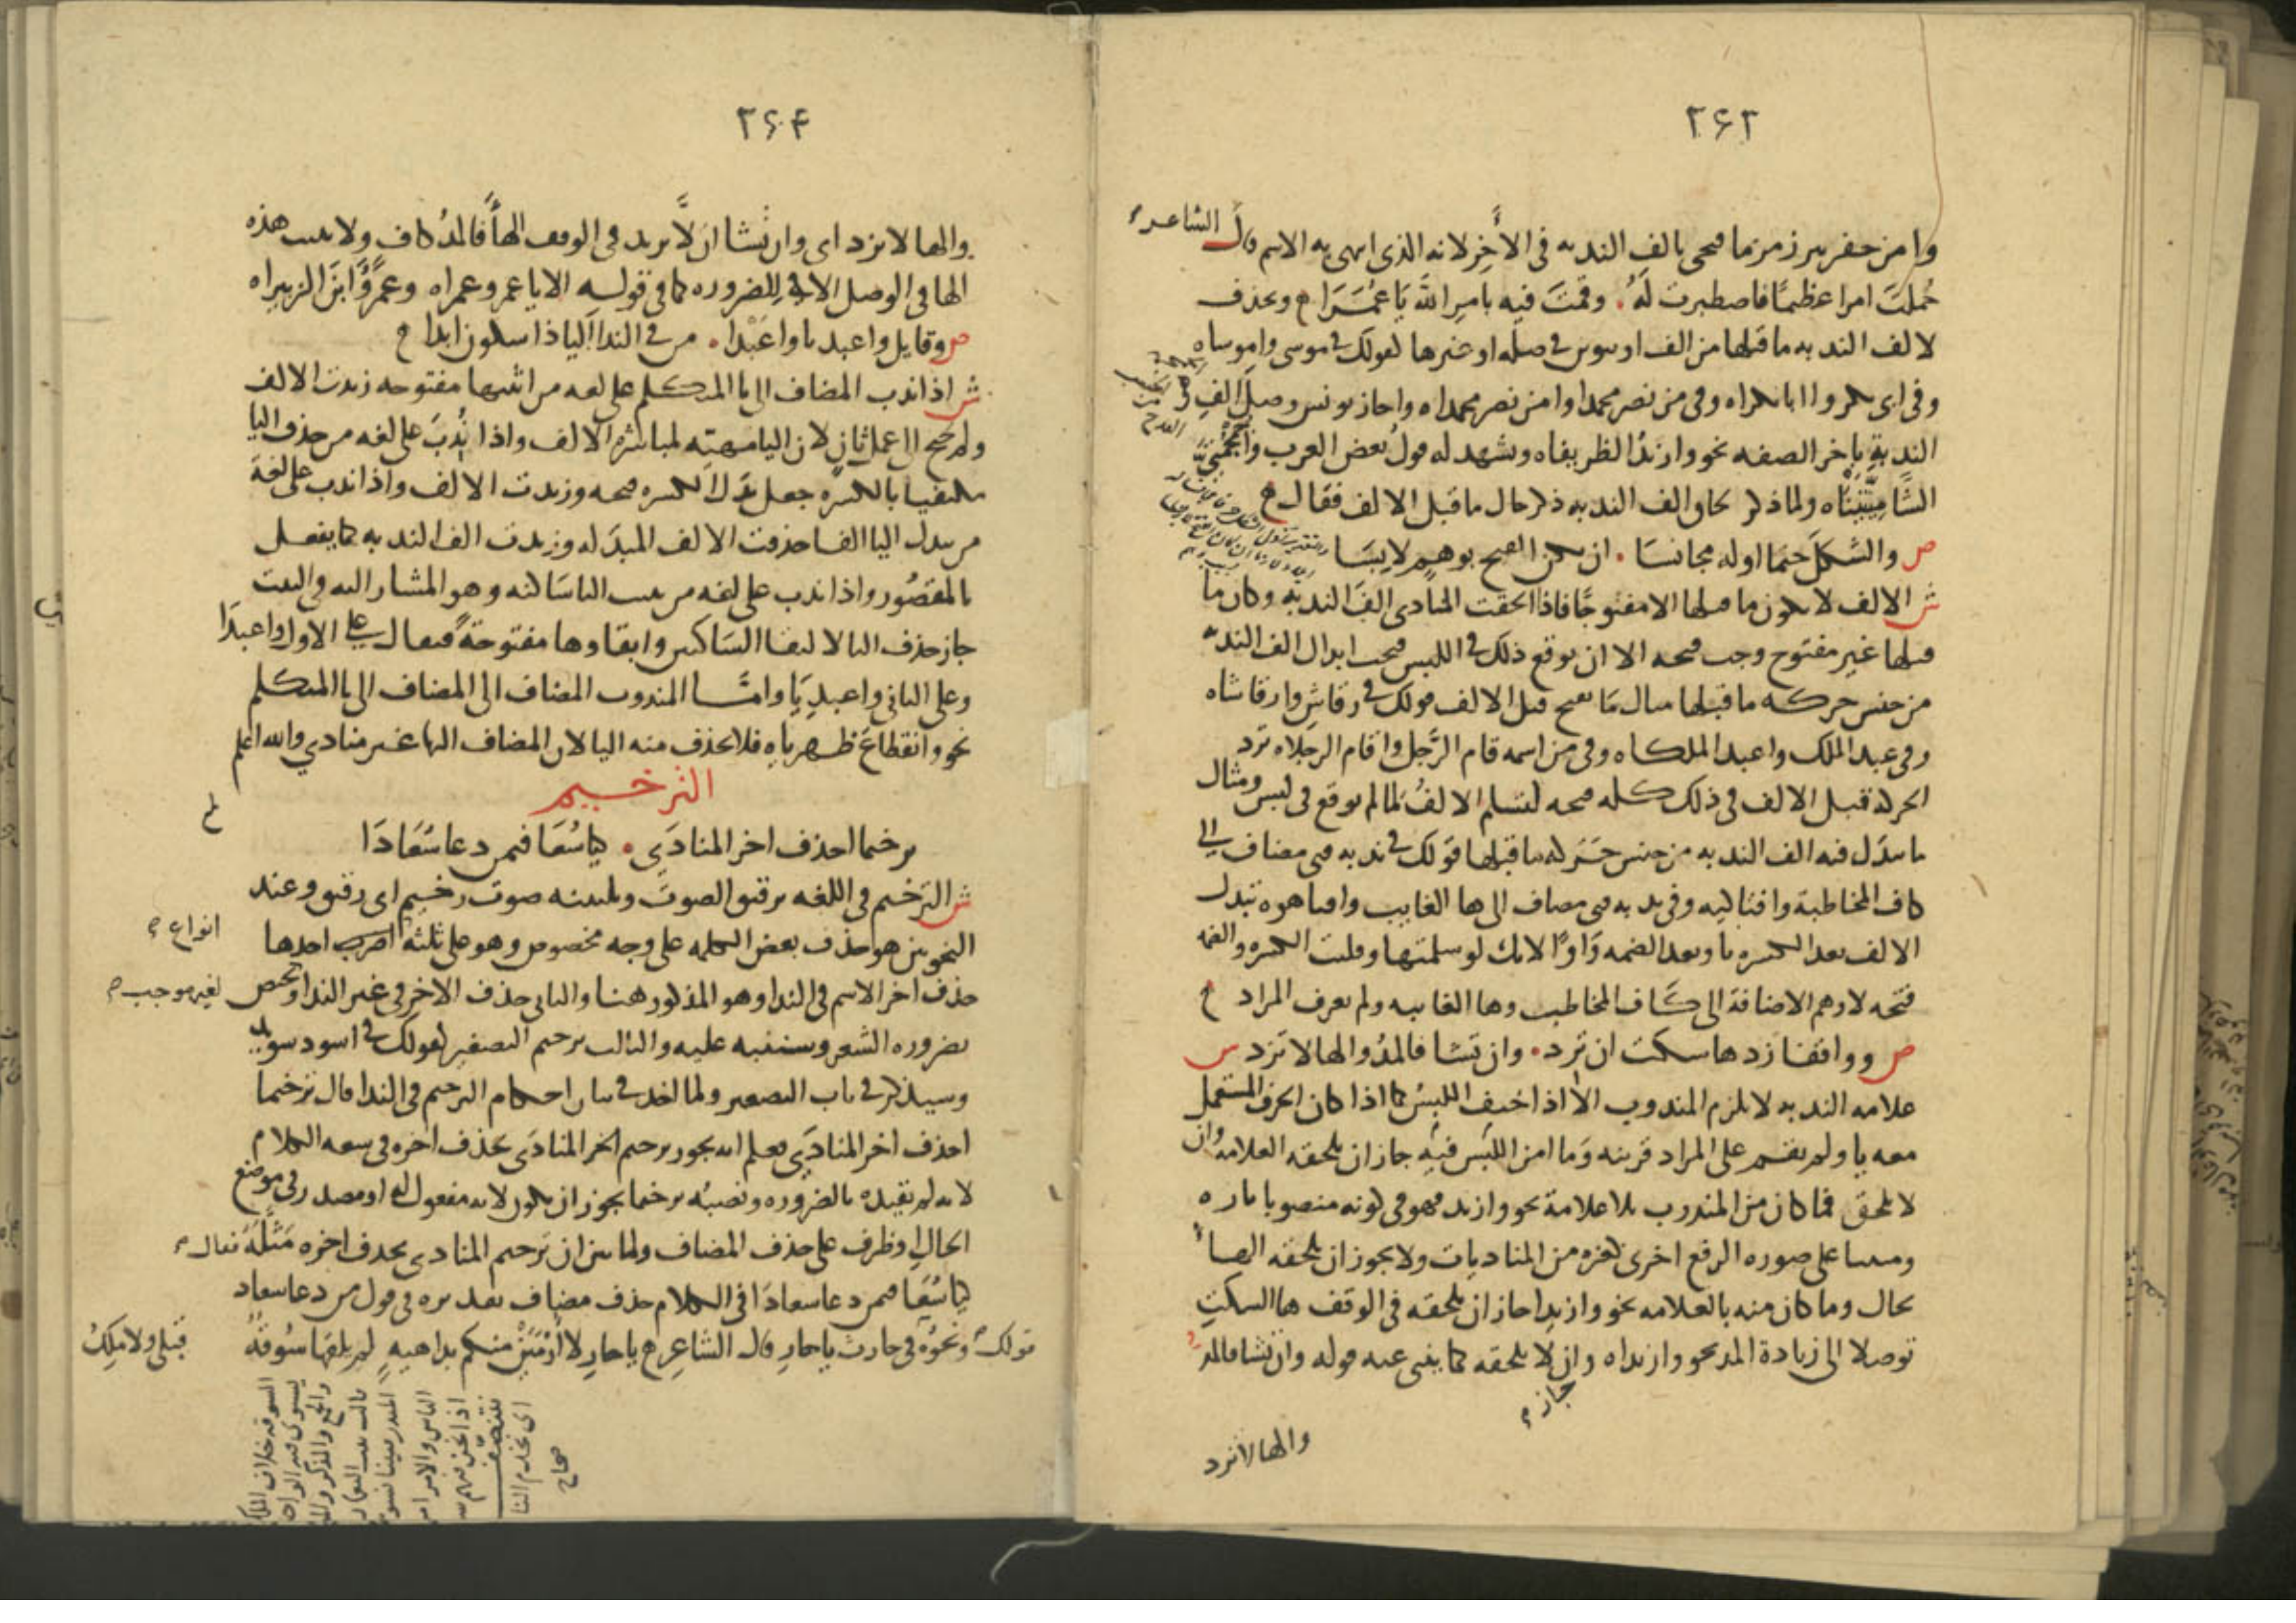 ٢٦٣
وا من حفر بير زمزما فيجي بالف الندبه في الأخر لانه الذي انتهى به الاسم قال الشاعر
حُملتَ امرا عظيمًا فاصطبرت لَهُ . وقمتَ فيه بامر اللَّه يَا عُمَرَا ويحذف
لالف الندبه ما قبلها من الف او تنوين في صله او غيرها كقولك في موسى وا موساه
وفي ابي بكر وا ابا بكراه وفي من نصر محمدا وا من نصر محمداه واجاز يونس وصل الف
الندبةِ باخر الصفه نحو وا زيدُ الظريفاه ويشهد له قول بعض العرب وا جُمْجُمَتَيَّ
الشَّامِيَّتَيْنَاه ولما ذكر لحاق الف الندبه ذكر حال ما قبل الالف فقال
ص والشكلَ حتمًا اوله مجانسَا . ان يكن الفتح بوهم لابسَا
ش الالف لا يكون ما قبلها الا مفتوحًا فاذا الحقت المنادى الفَ الندبه وكان ما
قبلها غير مفتوح وجب فتحه الا ان يوقع ذلك في اللبس فيجب ابدال الف الندبه
من جنس حركه ما قبلها مثال مَا يفتح قبل الالف قولك في رقاشِ وا رقاشاه
وفي عبد الملك وا عبد الملكاه وفي من اسمه قام الرَّجل وا قام الرجلاه ترد
الحركة قبل الالف في ذلك كله فتحه لتسلم الالفُ لما لم يوقع في لبس ومثال
ما تبدَل فيه الف الندبه من جنس حَرَكه ما قبلها قولك في ندبه فتى مضاف الي
كاف المخاطبة وا فتاكيه وفي ندبه فتى مضاف الى ها الغايب وا فتاهوه تبدل
الالف بعد الكسره يا وبعد الضمه وَاوًا لانك لو سلمتها وقلبت الكسره والضمه
فتحه لاوهم الاضافة الى كَاف المخاطب وها الغايبه ولم يعرف المراد
ص وواقفا زد ها سكت ان ترد . وان تشا فالمدُ والها لا تزد ش
علامه الندبه لا يلزم المندوب الا اذا اخيف اللبسُ كما اذا كان الحرف المستعمل
معه يا ولم يقم على المراد قرينه وَما امن اللبس فيهِ جاز ان يلحقه العلامه وان
لا يلحق فما كان من المندوب بلا علامة نحو وا زيد فهو في كونه منصوبا تاره
ومبنيا على صوره الرفع اخرى كغيره من المناديات ولا يجوز ان يلحقه الها
بحال وما كان منه بالعلامه نحو وا زيدا جاز ان يلحقه في الوقف ها السكتِ
توصلا الى زيادة المد نحو وا زيداه وان لا يلحقه كما ينبي عنه قوله وان تشا فالمدُ
جاز
والها لا تزد
٢٦٤
والها لا تزد اي وان تشا ان لَّا تزيد في الوقف الهأَ فالمدُ كاف ولا تثبت هذه
الها في الوصل الا في الضروره كما في قوله الا يا عمرو عمراه وعمرُو ابنَ الزبيراه
ص وقايل وا عبديا وا عبْدا . من في الندا اليا ذا سكون ابدا
ش اذا ندب المضاف الى يا المتكلم على لغه من اثبتها مفتوحه زيدت الالف
ولم يحتج الى عمل ثانٍ لان اليا مهيته لمباشرة الالف واذا نُدبَ على لغه من حذف اليا
مكتفيا بالكسره جعل بَدَل الكسره فتحه وزيدت الالف واذا ندب على لغة
من يبدل اليا الفا حذفت الالف المبدَله وزيدت الف الندبه كما يفعل
بالمقصُور واذا ندب على لغه من يثبت اليا سَاكنه وهو المشار اليه في البيت
جاز حذف اليا لالتقا السَاكنين وابقاوها مفتوحةً فيقال على الاول وا عبدَا
وعلى الثاني وا عبدِيَا وامَّا المندوب المضاف الى المضاف الى يا المتكلم
نحو وا انقطاعَ ظهرياهِ فلا يحذف منه اليا لان المضاف اليها غير منادي والله اعلم
الترخيم
ترخيما احذف اخر المنادَى . كيا سُعَا فيمن دعا سُعَادَا
ش الترخيم في اللغه ترقيق الصوت وتليينه صوت رخيم اي رقيق وعند
النحويين هو حذف بعض الكلمه على وجه مخصوص وهو على ثلثه اضرب احدها
انواع
حذف اخر الاسم في الندا وهو المذكور هنا والثاني حذف الاخر في غير الندا ويختص
لغير موجب
بضروره الشعر وسننبه عليه والثالث ترخيم التصغير كقولك في اسود سويد
وسيذكر في باب التصغير ولما اخذ في بيان احكام الترخيم في الندا قال ترخيما
احذف اخر المنادَى فعلم انه يجوز ترخيم اخر المنادَى بحذف اخره في سعه الكلام
لانه لم يقيده بالضروره ونصبُه ترخيما يجوز ان يكون لانه مفعول له او مصدر في موضع
الحالِ او ظرف على حذف المضاف ولما بين ان ترخيم المنادى بحذف اخره مَثَّلهُ فقال
كيا سُعَا فيمن دعا سعادَا في الكلام حذف مضاف تقديره في قول من دعا سعاد
قولك ونحوُه في حارث يا حارِ قال الشاعر يا حارِ لا أُرْمَيَنْ منكم بداهيهٍ لم يلقها سُوقةٌ
قبلي ولا ملكُ
السوقه خلاف الملك
يستوي فيه الواحد
والجمع والمذكر والمونث
الناس والامر امر
اذا نحن فيهم
نتنصّف
اي نخدم الناس
صحاح